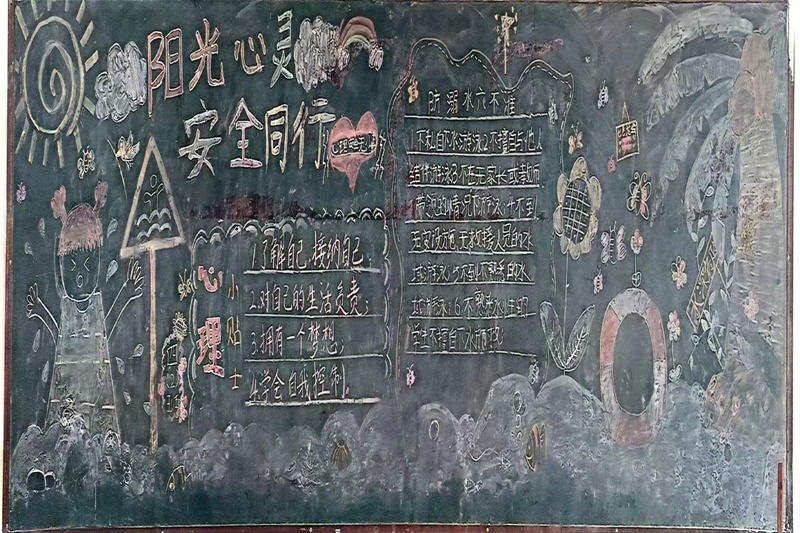 阳光心灵
安全同行
心理
小贴士
1.了解自己,接纳自己;
2.对自己的生活负责;
3.拥有一个梦想;
4.学会自我控制。
防溺水六不准
1.不私自下水游泳2.不擅自与他人
结伴游泳3.不在无家长或教师
带领的情况下游泳4.不到
无安设施,无救援人员的水
域游泳;5.不到不熟悉的水
域游泳;6.不熟悉水性的
学生不擅自下水施救;